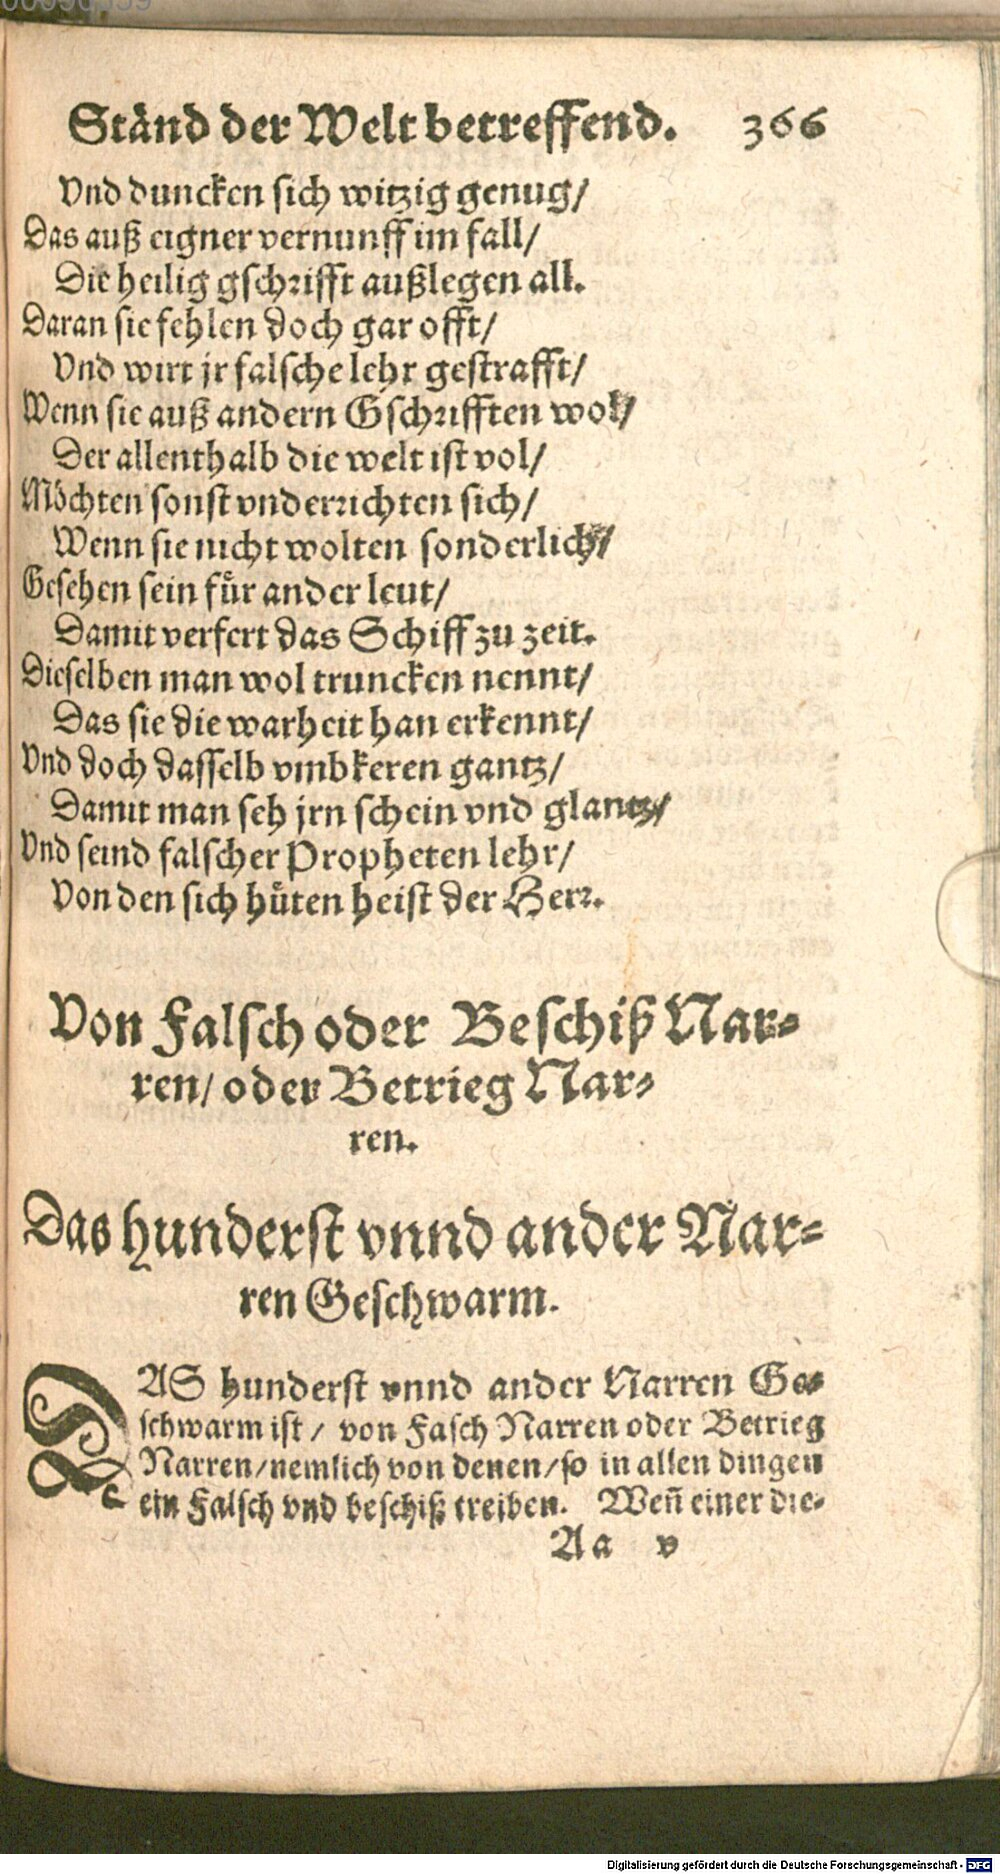 Ständ der Welt betreffend. 366
Vnd duncken sich witzig genug/
Das auß eigner vernunff im fall/
Die heilig gschrifft außlegen all.
Daran sie fehlen doch gar offt/
Vnd wirt jr falsche lehr gestrafft/
Wenn sie auß andern Gschrifften wol/
Der allenthalb die welt ist vol/
Möchten sonst vnderrichten sich/
Wenn sie nicht wolten sonderlich/
Gesehen sein für ander leut/
Damit verfert das Schiff zu zeit.
Dieselben man wol truncken nennt/
Das sie die warheit han erkennt/
Vnd doch dasselb vmbkeren gantz/
Damit man seh jrn schein vnd glantz/
Vnd seind falscher Propheten lehr/
Von den sich hüten heist der Herr.
Von Falsch oder Beschiß Nar-
ren/ oder Betrieg Nar-
ren.
Das hunderst vnnd ander Nar-
ren Geschwarm.
DAS hunderst vnnd ander Narren Ge-
schwarm ist / von Fasch Narren oder Betrieg
Narren/nemlich von denen/so in allen dingen
ein Falsch vnd beschiß treiben. Weñ einer die-
Aa v
Digitalisierung gefördert durch die Deutsche Forschungsgemeinschaft - DFG